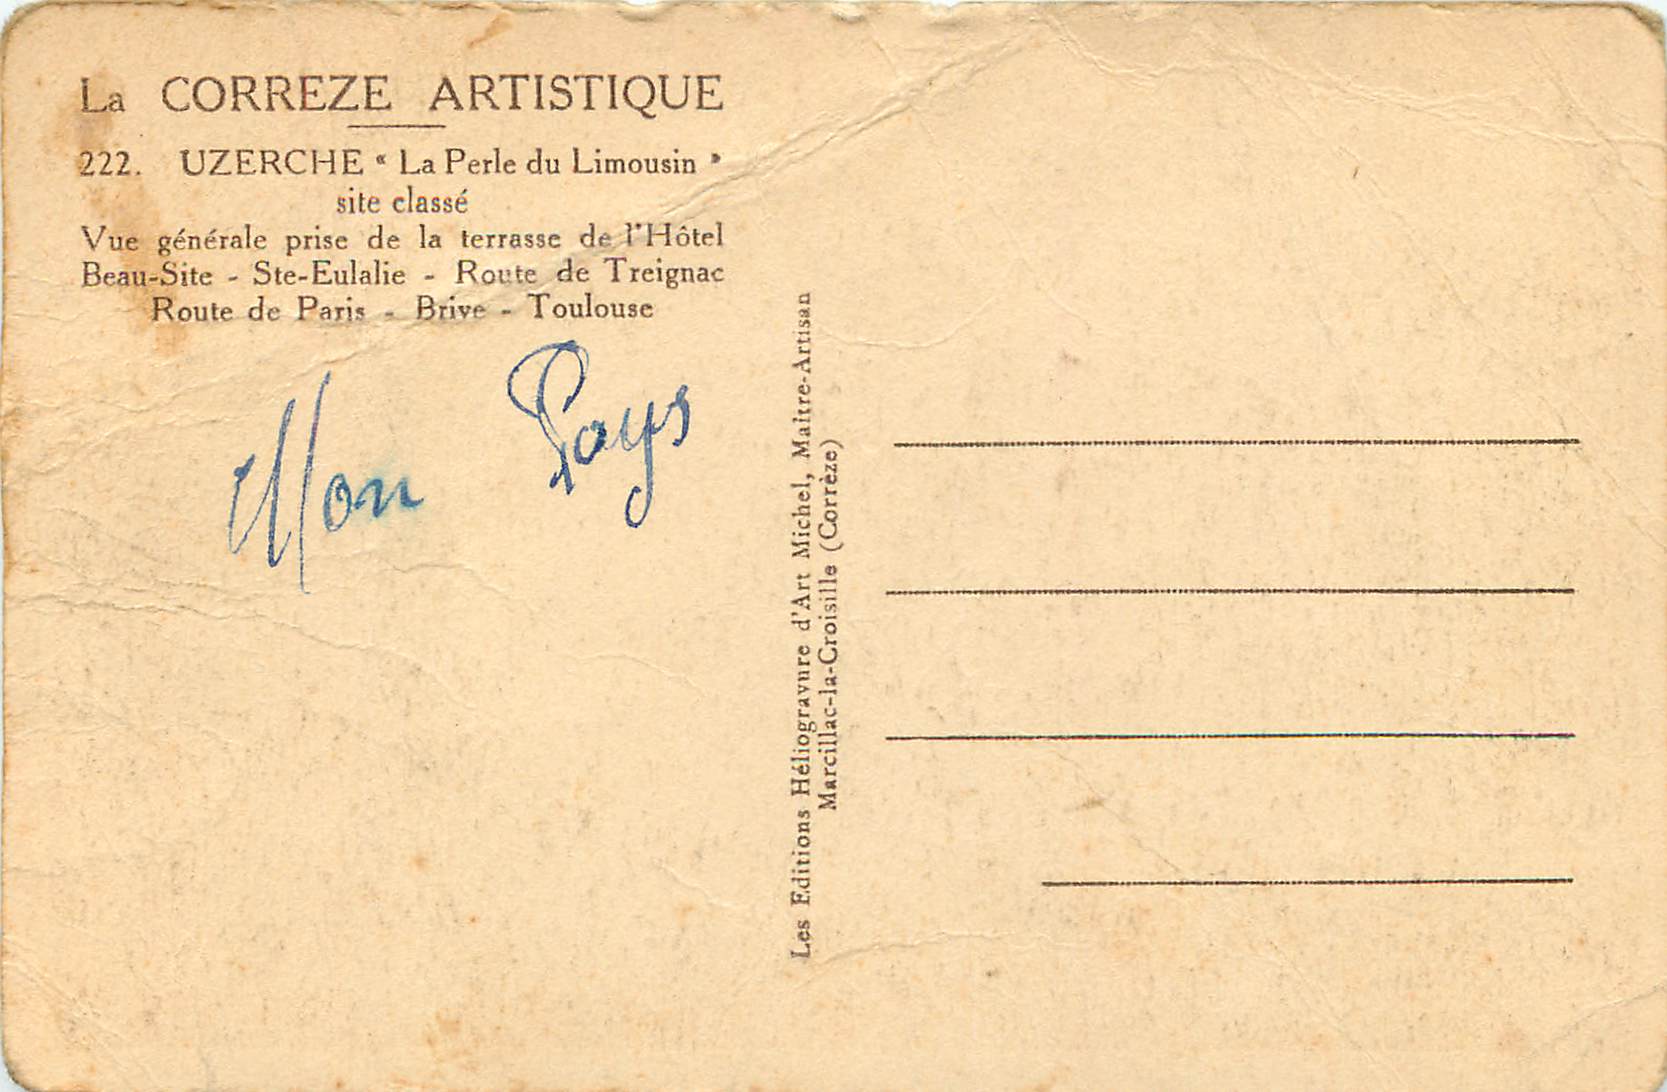 La CORREZE ARTISTIQUE
222. UZERCHE « La Perle du Limousin »
site classé
Vue générale prise de la terrasse de l'Hôtel
Beau-Site - Ste-Eulalie - Route de Treignac
Route de Paris - Brive - Toulouse
Mon Pays
Les Editions Héliogravure d'Art Michel, Maître-Artisan
Marcillac-la-Croisille (Corrèze)